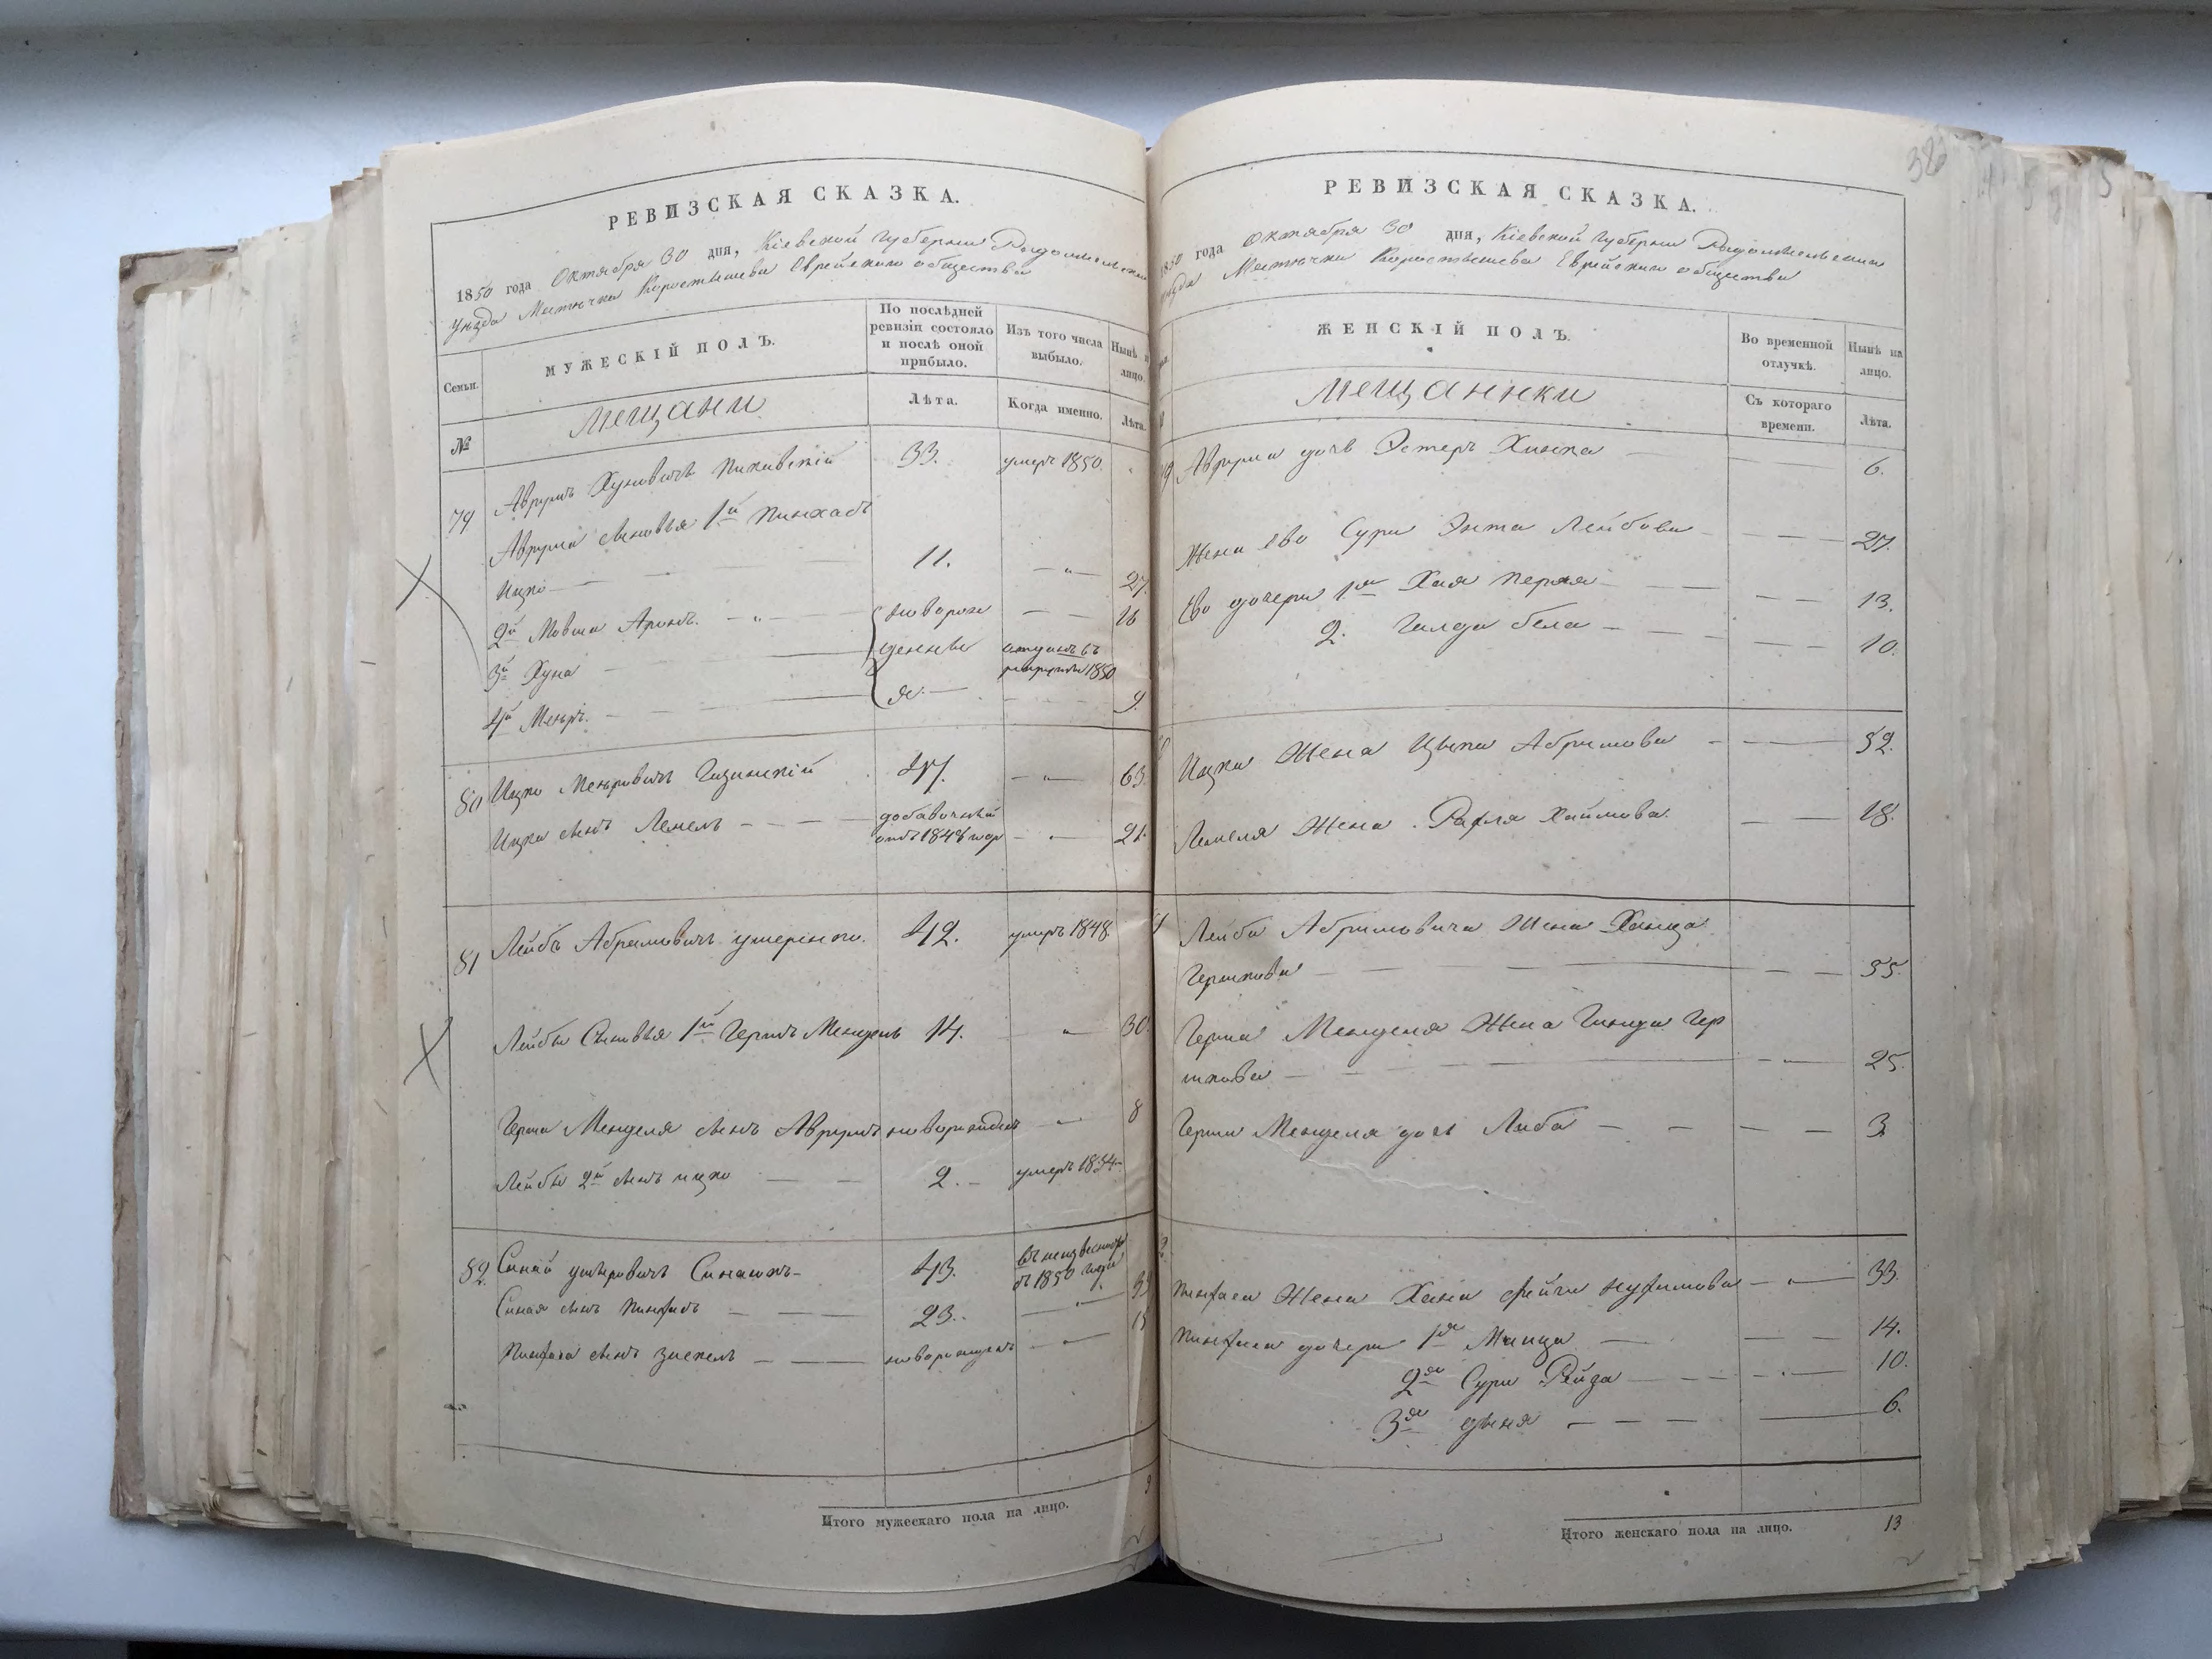 РЕВИЗСКАЯ СКАЗКА.
1850 года Октября 30 дня, Кіевской Губерніи Радомысльскаго
уезда Мѣстечка Коростышева Еврейскаго общества
Семьи.
МУЖЕСКІЙ ПОЛЪ.
По послѣдней ревизіи состояло и послѣ оной прибыло.
Изъ того числа выбыло.
Нынѣ на лицо.
№
Мещани
Лѣта.
Когда именно.
Лѣта.
79 Аврумъ Хуновичъ 33. умеръ 1850.
Аврума сыновья 1й Пинхасъ
Ицко 11. 27
2й Мовша Аронъ. новорож 16
3й Хуна денные отданъ въ рекруты 1850
4й Мееръ. 9.
80 Ицко Меировичъ 47. 63.
Ицка сынъ Лемель добавочный 1848 21.
81 Лейба Абрамовичъ 42. умеръ 1848
Лейбы Сыновья 1й Гершъ Мендель 14. 30.
Герша Менделя сынъ Аврумъ новорожденъ 8
Лейбы 2й сынъ ицко 2. умеръ 1834
82 Синай 43. въ 1850
Синая сынъ Пинхасъ 23.
Пинхаса сынъ новорожденъ 15
Итого мужескаго пола на лицо. 9
386
РЕВИЗСКАЯ СКАЗКА.
1850 года Октября 30 дня, Кіевской Губерніи Радомысльскаго
уезда Мѣстечка Коростышева Еврейскаго общества
ЖЕНСКІЙ ПОЛЪ.
Во временной отлучкѣ.
Нынѣ на лицо.
Мещаннки
Съ котораго времени.
Лѣта.
Аврума дочь Эстеръ 6.
Жена ево Сура Энта Лейбова 27.
Ево дочери 1я Хая Перля 13.
2. Голда бела 10.
Ицка Жена Абрамова 52.
Лемеля Жена Рахля Хаймова. 18.
Лейбы Абрамовича Жена
Гершкова 55.
Герша Менделя Жена Гер
шкова 25.
Герша Менделя дочь Либа 3.
Пинхаса Жена Хана Фейга 33.
Пинхаса дочери 1я 14.
2я Сура Рейза 10.
3я 6.
Итого женскаго пола на лицо. 13